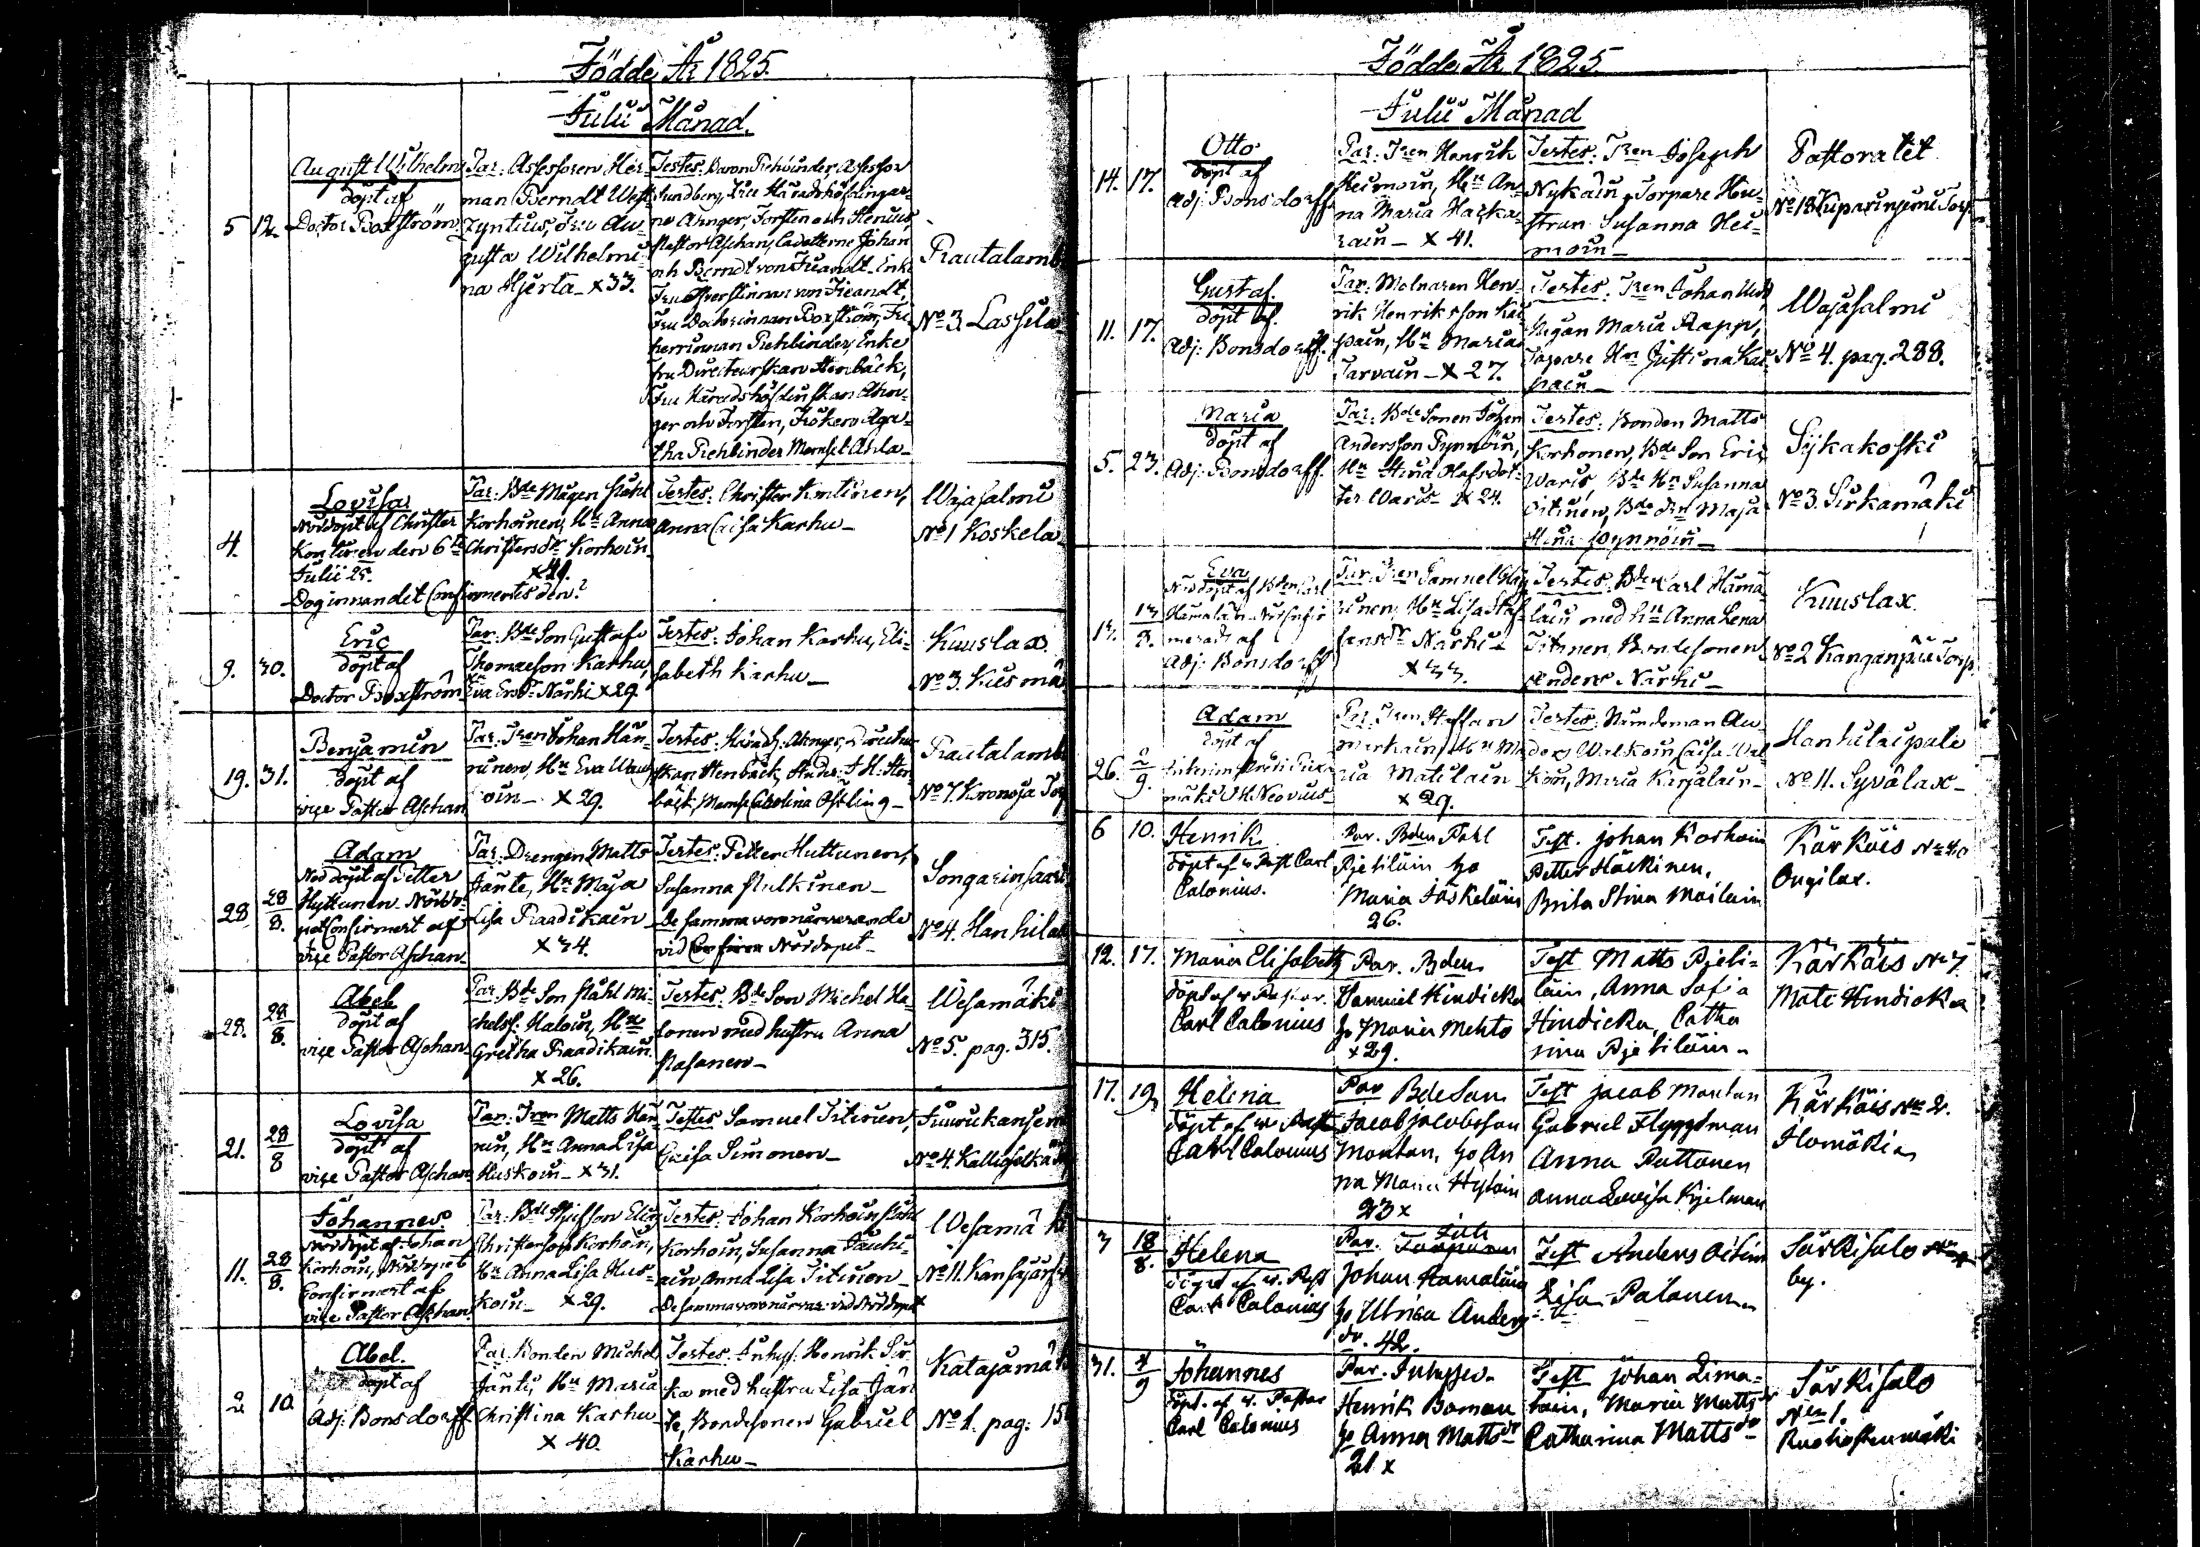 Födde År 1825.
Julii Månad.
5 12.
August Wilhelm
döpt af
Doctor Boxström
Par: Assessoren Her-
man Berndt West-
zyntius, Fru Au-
gusta Wilhelmi-
na Hjerta - x 33.
Testes: Baron Rehbinder, Assessor
Lundberg, Häradshöfdingar-
ne Ahnger, Forsten och Henius,
Pastor Aschan, Cadetterne Johan
och Berndt von Fieandt, Enke
Fru Öfverstinnan von Fieandt,
Fru Doctorinnan Boxström, Fri
herrinnan Rehbinder, Enke
fru Directeurskan Stenbäck,
Fru Häradshöfdinskan Ahn-
ger och Forsten, Fröken Aga-
tha Rehbinder Mamsel
Rautalamb
No 3. Lassila
4.
Lovisa
Nöddöpt af Christer
Kontinen den 6te
Julii 25.
Par: Bde Mågen Påhl
Korhoinen, Hu Anna
Christersdr Korhoin
x 49.
Testes: Christer Kontinen,
Anna Caisa Karhu -
Wajasalmi
No 1 Koskela
9. 30.
Eric
döpt af
Doctor Boxström
Par: Bde Son Gustaf
Thomasson Karhu,
Eva Ersdr Närhi x 29.
Testes: Johan Karhu, Eli-
sabeth Karhu -
Kuuslax
No 3.
19. 31.
Benjamin
döpt af
vice Pastor Aschan
Par: Tren Johan Hän-
ninen, Hu Eva
oin - x 29.
Testes: Häradsh: Ahnger,
skan Stenbäck, Studer: J H: Sten
bäck, Mamsel Carolina Östling -
Rautalamb
No 7. Kronoja Tor
28 28/8.
Adam
Nöddöpt af Petter
Huttunen Nöddo-
pet Confirmert af
vice Pastor Aschan
Par: Drengen Matts
Jänte, Hu Maja
Lisa Raadikain
x 34.
Testes: Petter Huttunen,
Susanna Pulkinen -
De samma voro närvarande
vid Nöddopet -
Songarinsaari
No 4. Hanhila
28. 28/8.
Abel
döpt af
vice Pastor Aschan
Par: Bde Son Påhl Mi-
chelss: Haloin, Hu
Gretha Raadikain
x 26.
Testes: Bde Son Michel Ha-
lonen med hustru Anna
Pasanen -
Wesamäki
No 5. pag. 315.
21. 28/8
Lovisa
döpt af
vice Pastor Aschan
Par: Tren Matts Hän-
nin, Hu Anna Lisa
Huskoin - x 31.
Testes Samuel Titinen,
Caisa Simonen -
No 4.
11. 28/8.
Johannes.
Nöddöpt af Johan
Korhoin, Nöddopet
Confirmert af
vice Pastor Aschan
Par: Bde Styfson Elias
Christersson Korhoin,
Hu Anna Lisa Hus-
koin - x 29.
Testes: Johan Korhoin Påhl
Korhoin, Susanna Pauhi-
ain Anna Lisa Titinen -
De samma voro närvar: vid Nöddopet
Wesamäki
No 11. Kansajärfvi
2 10
Abel.
döpt af
Adj: Bonsdorff
Par: Bonden Michel
Jänti, Hu Maria
Christina Karhu
x 40.
Testes: Inhys: Henrik Sir-
ka med hustru Lisa Jän-
te, Bondesonen Gabriel
Karhu -
Katajamä
No 1. pag: 15
Födde År 1825.
Julii Månad
14. 17.
Otto
döpt af
Adj: Bonsdorff
Par: Tren Henrik
Heimoin, Hu An-
na Maria Haka-
rain - x 41.
Testes: Tren Joseph
Nykäin, Torpare Hu-
strun Susanna Hei-
moin -
Pastoratet
No 18 Kuparinjemi Torp
11. 17.
Gustaf.
döpt af.
Adj: Bonsdorff.
Par: Molnaren Hen-
rik Henriksson Kai-
pain, Hu Maria
Tarvain - x 27.
Testes: Tren Johan
Pigan Maria Rapp,
Torpare Hu Justina Kai-
pain -
Wajasalmi
No 4. pag. 288.
5. 23.
Maria
döpt af
Adj: Bonsdorff.
Par: Bde Sonen Johan
Andersson Pynnöin,
Hu Stina Olafsdot-
ter Waris - x 24.
Testes: Bonden Matts
Korhonen, Bde Son Eric
Waris, Bde Hu Susanna
Oitinen, Bde dr Maja
Stina Pynnöin -
Sykäkoski
No 3. Sirkamäki
13/8.
Eva
Nöddöpt af Bden Carl
Hämäläin
meradt af
Adj: Bonsdorff
Par: Tren Samuel
rinen, Hu Lisa Staf-
fansdr Närhi -
x 33.
Testes: Bden Carl Hämä-
läin med hu Anna Lena
Titinen, Bondesonen
Anders Närhi -
Kuuslax
No 2 Kanganpää Torp
26. 2/9.
Adam
döpt af
Neovius
Par: Tren Staffan
Markain, Hu Ma
ria Matilain
x 29.
Testes: Nämdeman An
ders Walkoin Caisa Wal
koin, Maria Karjalain -
Hanhitaipale
No 11. Syvälax -
6 10.
Henrik
döpt af v. Past Carl
Calonius.
Par. Bden Pahl
Pjetiläin ho
Maria Jäskeläin
26.
Test. Johan Korhoin
Petter Häckinen,
Brita Stina Moilain
Kärkäis No 40
Ongilax.
12. 17.
Maria Elisabeth
döpt af v Pastor.
Carl Calonius
Par. Bden
Samuel Hindicka
ho Maria Mehto
x 29.
Test Matts Pjeti-
läin, Anna Sofia
Hindicka, Catha
rina Pjetiläin -
Kärkäis No 7
Mati Hindicka
17. 19
Helena
döpt af v Past
Carl Calonius
Par Bde Son
Jacob Jacobsson
Montan, ho An
na Maria Hytöin
23 x
Test Jacob Montan
Gabriel Flyggtman
Anna Puttonen
Anna Lovisa Kjelman
Kärkäis No 2.
Ilomäki
3 18/8.
Helena
döpt af v. Past
Carl Calonius
Par.
Johan Hämäläin
ho Ulrica Anders
dr. 42.
Test Anders Oitin
Lisa Palonen
Särkisalo
by.
31. 4/9
Johannes
döpt. af v. Pastor
Carl Calonius
Par. Inhyses
Henrik Boman
ho Anna Mattsdr
21 x
Test Johan Lima-
tain, Maria Mattsdr
Catharina Mattsdr
Särkisalo
No 1.